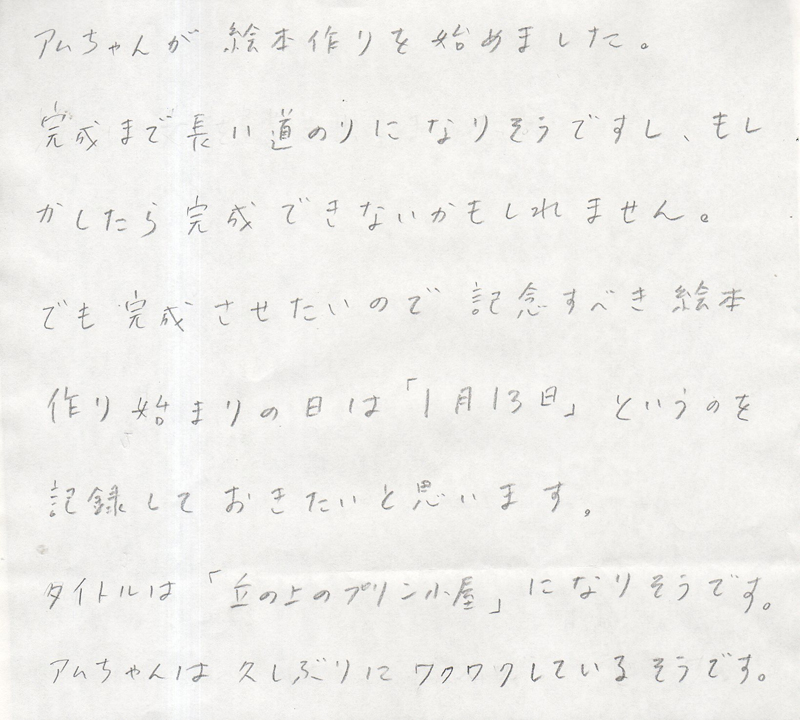 アムちゃんが 絵本作りを始めました。
完成まで長い道のりになりそうですし、もし
かしたら完成できないかもしれません。
でも完成させたいので記念すべき絵本
作り始まりの日は「1月13日」というのを
記録しておきたいと思います。
タイトルは「丘の上のプリン小屋」になりそうです。
アムちゃんは久しぶりにワクワクしているそうです。